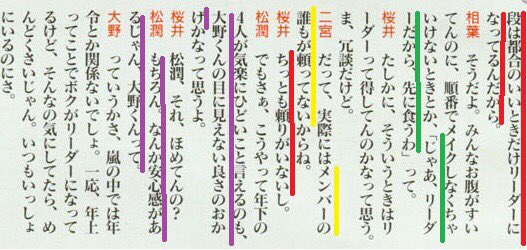 段は都合のいいときだけリーダーに
なってるんだから。
相葉 そうだよ。みんなお腹がすい
てんのに、順番でメイクしなくちゃ
いけないときとか、「じゃあ、リーダ
ーだから、先に食うわ」って。
桜井 たしかに、そういうときはリ
ーダーって得してんのかなって思う。
ま、冗談だけど。
二宮 だって、実際にはメンバーの
誰もが頼ってないからね。
桜井 ちっとも頼りがいないし。
松潤 でもさぁ、こうやって年下の
4人が気楽にひどいこと言えるのも、
大野くんの目に見えない良さのおか
げかなって思うよ。
桜井 松潤、それ、ほめてんの?
松潤 もちろん。なんか安心感があ
るじゃん、大野くんって。
大野 っていうかさ、嵐の中では年
令とか関係ないでしょ。一応、年上
ってことでボクがリーダーになって
るけど、そんなの気にしてたら、め
んどくさいじゃん。いつもいっしょ
にいるのにさ。